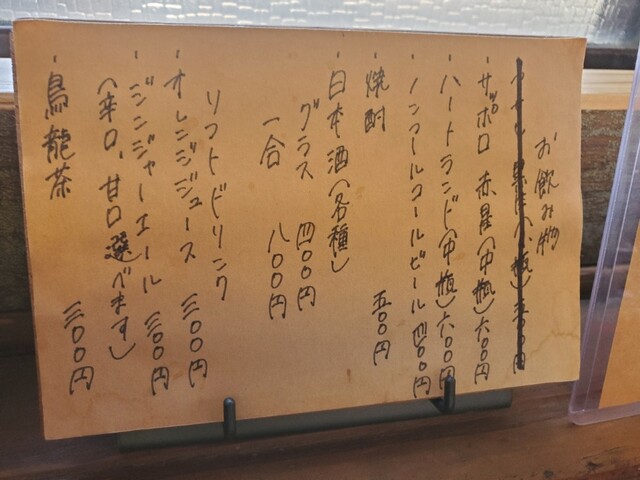 お飲み物
・サッポロ 赤星(中瓶) 六〇〇円
・ハートランド(中瓶) 六〇〇円
・ノンアルコールビール 四〇〇円
・焼酎 五〇〇円
・日本酒(各種)
グラス 四〇〇円
一合 八〇〇円
ソフトドリンク
・オレンジジュース 三〇〇円
・ジンジャーエール 三〇〇円
(辛口、甘口選べます)
・烏龍茶 三〇〇円